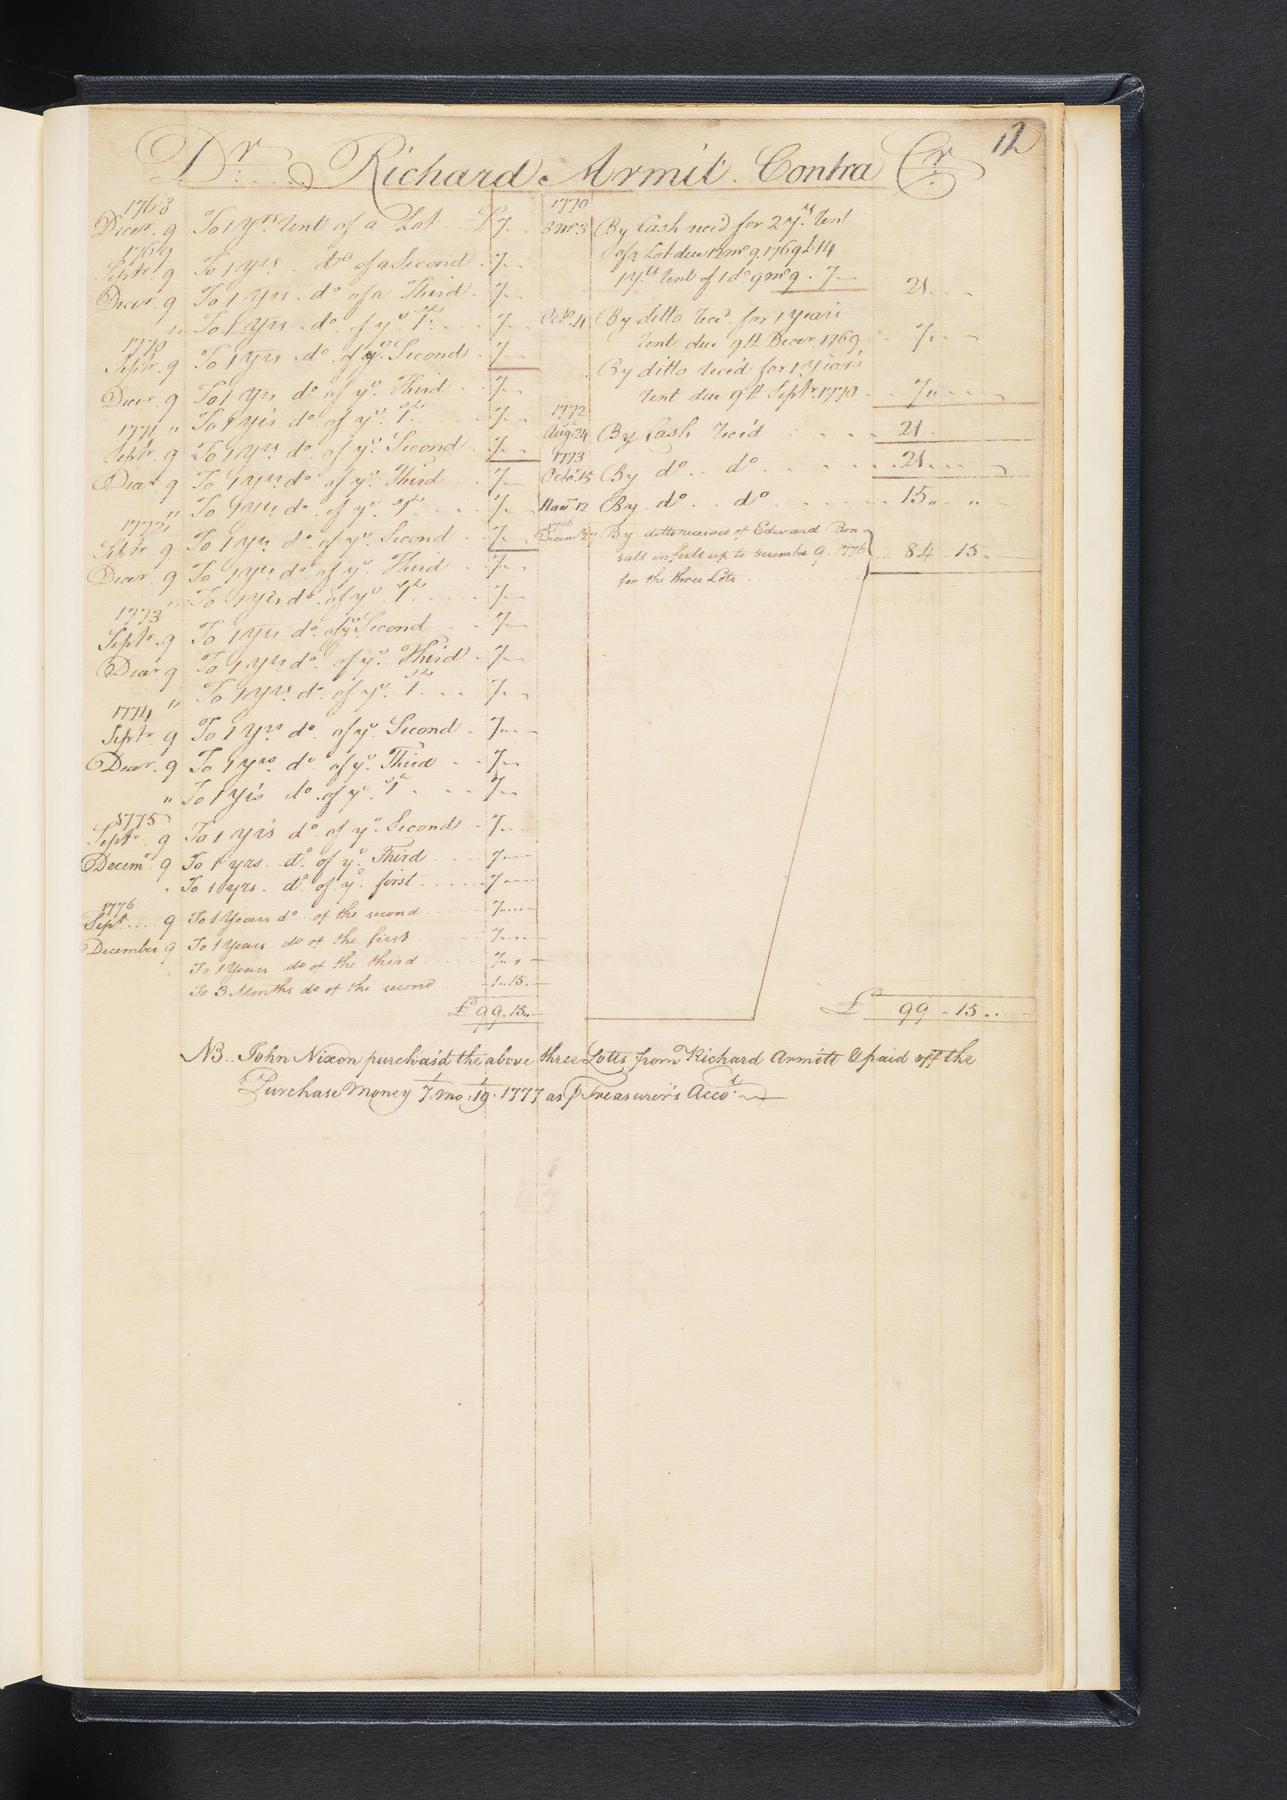 12
Dr. Richard Armit. Contra Cr.
1768
Decer. 9 To 1 yrs Rent of a Lot £7
1769
Septr. 9 To 1 yrs. do of a Second 7
Decer. 9 To 1 Yrs. do. of a Third 7
" To 1 Yrs. do. of ye. 1st. 7
1770
Septr. 9 To 1 yrs. do. of ye. Second 7
Decer. 9 To 1 Yrs do. of ye. Third 7
" To 1 Yrs do. of ye. 1st. 7
1771
Septr. 9 To 1 yrs do. of ye. Second 7
Decer 9 To 1 yrs do. of ye. Third 7
" To 1 yrs do. of ye. 1st. 7
1772
Septr. 9 To 1 yrs do. of ye. Second 7
Decer. 9 To 1 yrs do. of ye. Third 7
" To 1 yrs do. of ye. 1st. 7
1773
Septr. 9 To 1 yrs do. of ye Second 7
Decer 9 To 1 yrs do. of ye. Third 7
" To 1 yrs. do. of ye. 1st. 7
1774
Septr. 9 To 1 Yrs do. of ye. Second 7
Decer. 9 To 1 yrs. do. of ye. Third 7
" To 1 Yrs do. of ye. 1st 7
1775
Septr. 9 To 1 yrs do. of ye. Second 7
Decemr. 9 To 1 yrs. do. of ye. Third 7
" To 1 yrs. do. of ye. first 7
1776
Sept. 9 To 1 Years do. of the second 7
December 9 To 1 Years do of the first 7
To 1 Years do of the third 7
To 3 Months do of the second 1..15.
£99.15..
1770
3 mo. 3 By Cash recd for 2 yrs. Rent
of a Lot due 12 mo 9 1769 £14
1 Yrs Rent of 1 do. 9 mo 9 . 7
21
Octo. 4 By ditto Recd. for 1 years
Rent due 9th Decer. 1769 7
By ditto Rec'd for 1 Year's
Rent due 9th Septr. 1770 7
1772
Augt. 24 By Cash Rec'd 21
1773
Octor. 15 By do. do 21
Novr. 12 By. do. do 15 " "
1776
Decemr. 27 By ditto received of Edward Bon-
sall in full up to December 9. 1776
for the three Lots 84 . 15 "
£ 99 . 15 ..
NB.. John Nixon purchas'd the above three Lotts from Richard Armitt & paid off the
Purchase Money 7. mo. 19. 1777 as p Treasurer's Acco.t